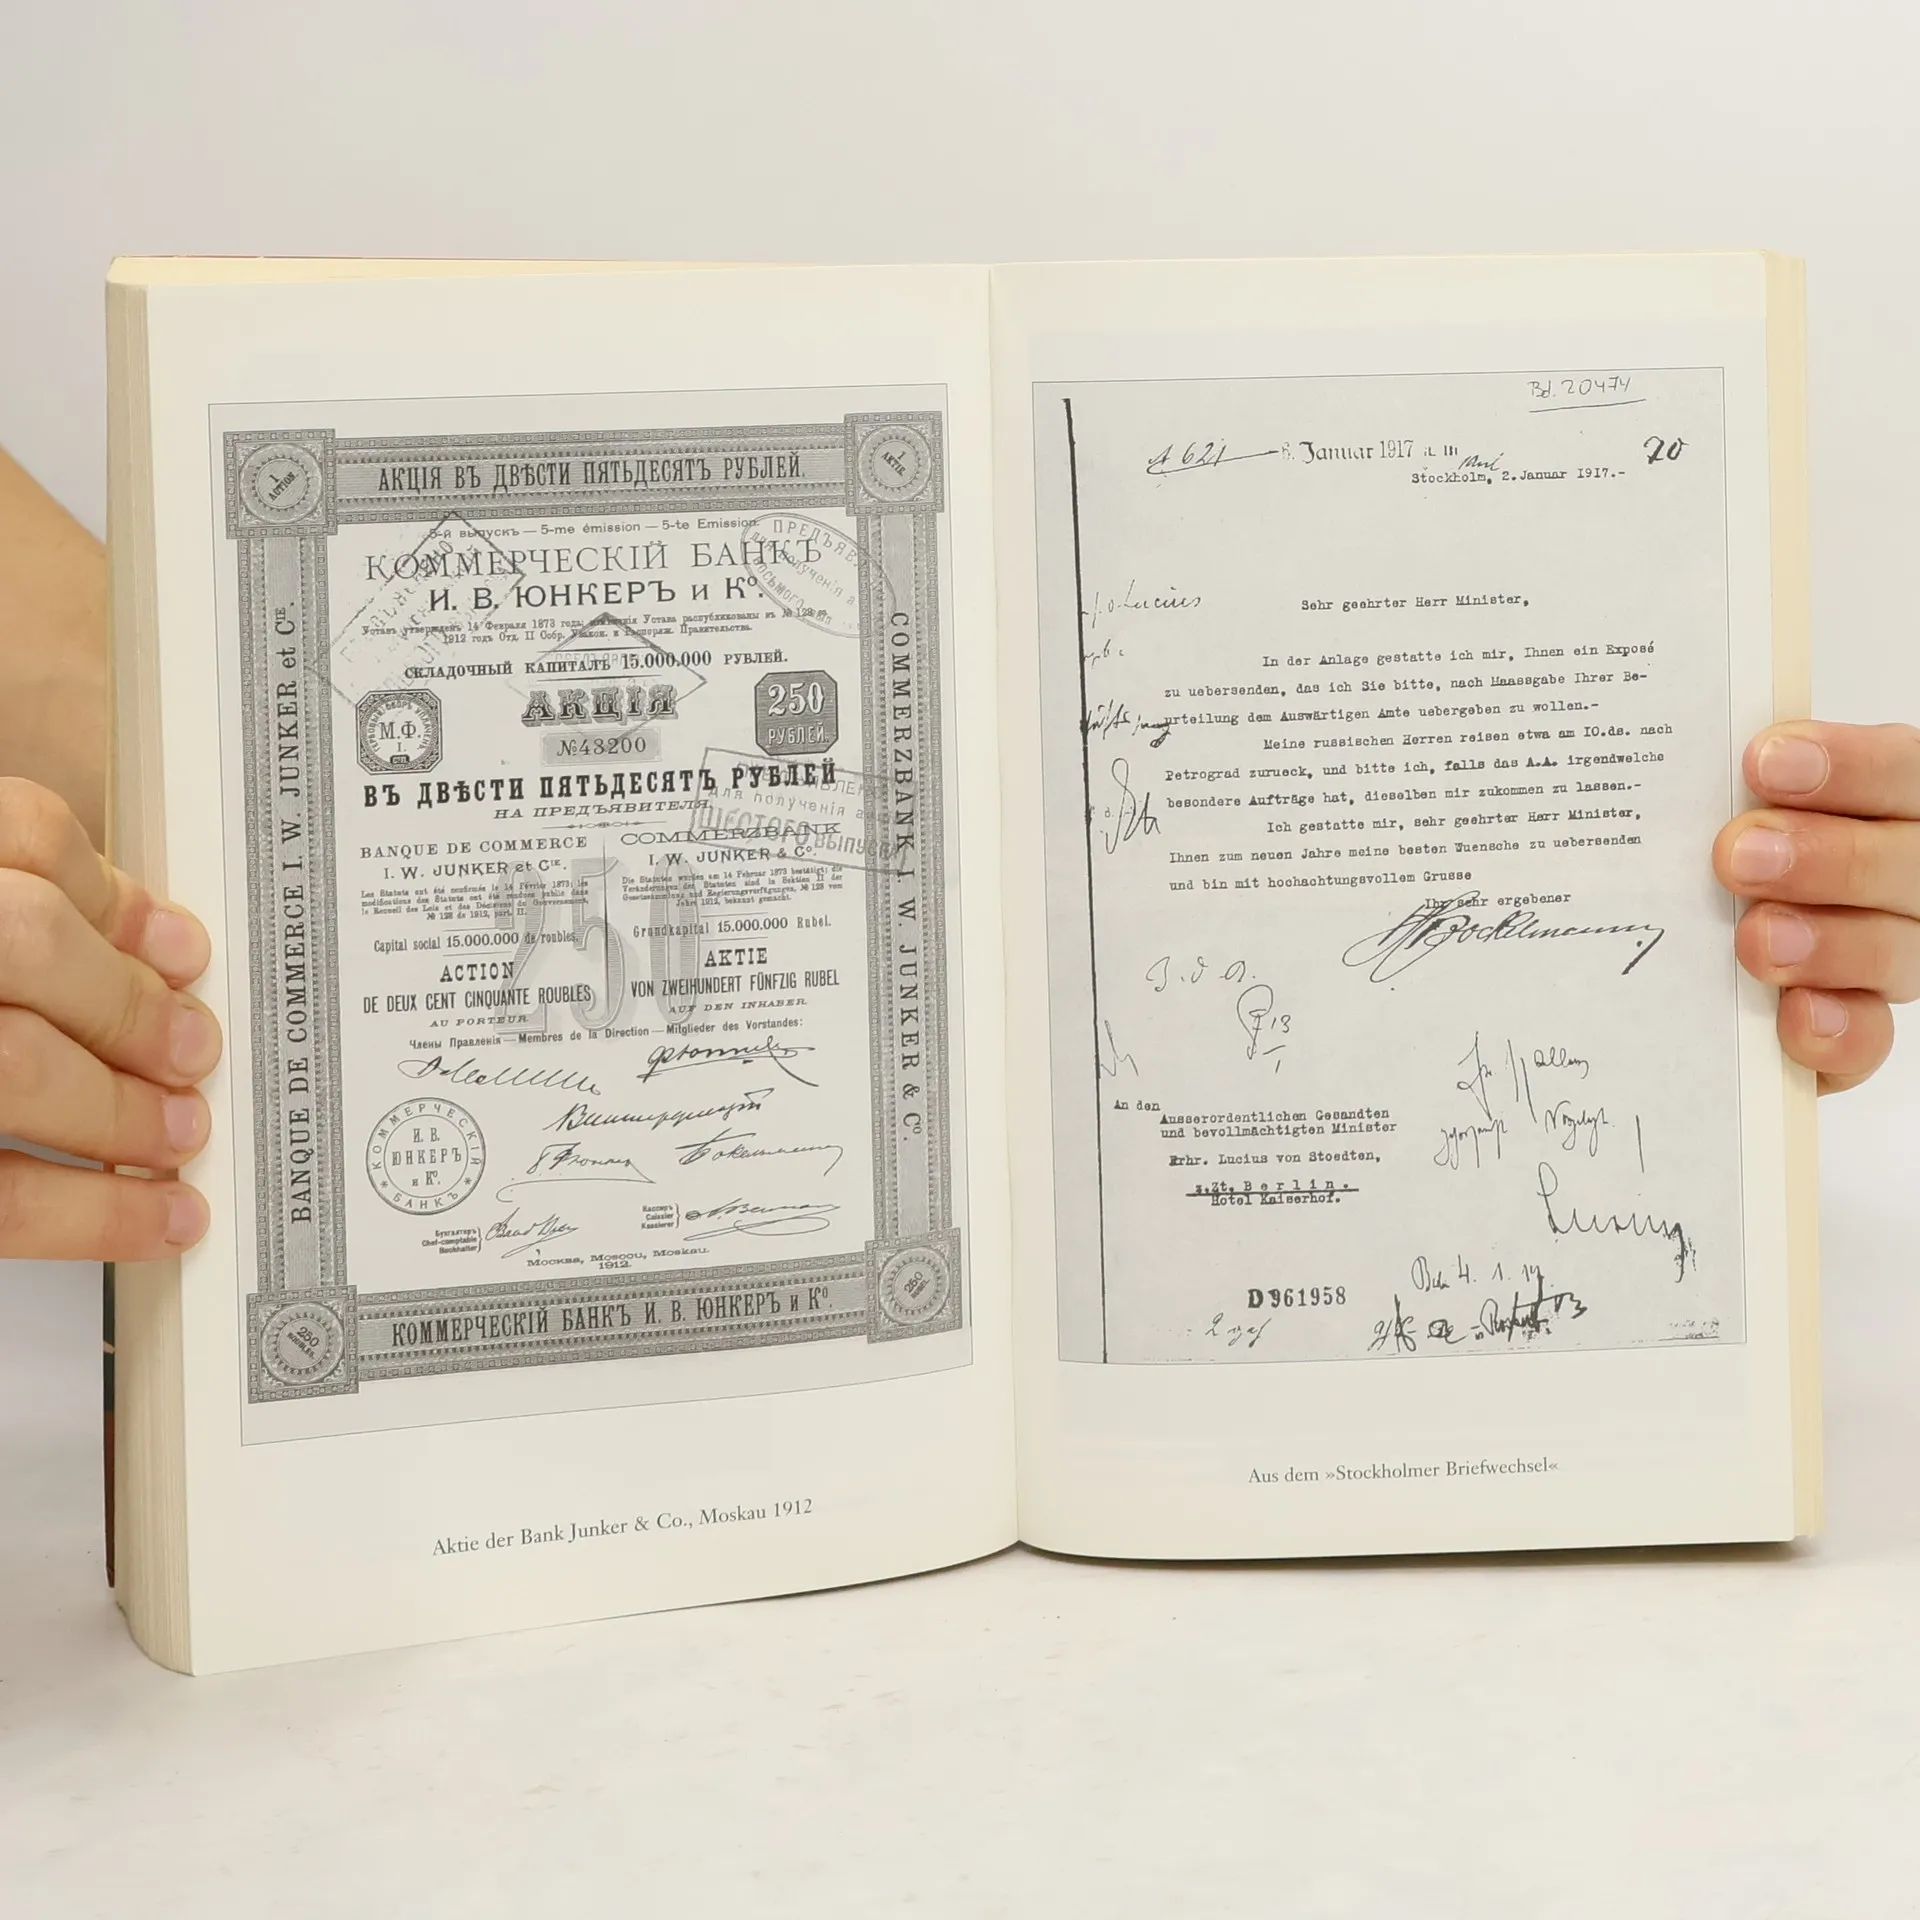 1
ACTION.
АКЦІЯ ВЪ ДВѢСТИ ПЯТЬДЕСЯТЪ РУБЛЕЙ.
1
AKTIE.
5-й выпускъ — 5-me émission — 5-te Emission.
КОММЕРЧЕСКІЙ БАНКЪ
И. В. ЮНКЕРЪ и Кº.
Уставъ утвержденъ 14 Февраля 1873 года; измѣненія Устава распубликованы въ № 128
1912 годъ Отд. II Собр. Узакон. и Распоряж. Правительства.
СКЛАДОЧНЫЙ КАПИТАЛЪ 15.000.000 РУБЛЕЙ.
АКЦІЯ
250
РУБЛЕЙ.
М.Ф.
I.
№43200
ВЪ ДВѢСТИ ПЯТЬДЕСЯТЪ РУБЛЕЙ
НА ПРЕДЪЯВИТЕЛЯ.
ШЕСТОГО ВЫПУСКА
BANQUE DE COMMERCE
I. W. JUNKER et CIE.
Les Statuts ont été confirmés le 14 Février 1873; les
modifications des Statuts ont été rendues public dans
le Recueil des Lois et des Décisions du Gouvernement,
№ 128 de 1912, part. II.
Capital social 15.000.000 de roubles.
ACTION
DE DEUX CENT CINQUANTE ROUBLES
AU PORTEUR
COMMERZBANK
I. W. JUNKER & Cº.
Die Statuten wurden am 14 Februar 1873 bestätigt; die
Veränderungen der Statuten sind in Sektion II der
Gesetzsammlung und Regierungsverfügungen, № 128 vom
Jahre 1912, bekannt gemacht.
Grundkapital 15.000.000 Rubel.
AKTIE
VON ZWEIHUNDERT FÜNFZIG RUBEL
AUF DEN INHABER.
250
Члены Правленія — Membres de la Direction — Mitglieder des Vorstandes:
КОММЕРЧЕСКІЙ БАНКЪ
И. В.
ЮНКЕРЪ
и Кº.
Бухгалтеръ
Chef-comptable
Buchhalter
Кассиръ
Caissier
Kassierer
Москва, Moscou, Moskau.
1912.
BANQUE DE COMMERCE I. W. JUNKER et CIE.
COMMERZBANK I. W. JUNKER & Cº.
250
ROUBLES.
КОММЕРЧЕСКІЙ БАНКЪ И. В. ЮНКЕРЪ и Кº.
250
RUBEL.
Aktie der Bank Junker & Co., Moskau 1912
Bd. 20474
A 621
6. Januar 1917
20
Stockholm, 2. Januar 1917.-
Lucius
Sehr geehrter Herr Minister,
In der Anlage gestatte ich mir, Ihnen ein Exposé
zu uebersenden, das ich Sie bitte, nach Maassgabe Ihrer Be-
urteilung dem Auswärtigen Amte uebergeben zu wollen.-
Meine russischen Herren reisen etwa am IO.ds. nach
Petrograd zurueck, und bitte ich, falls das A.A. irgendwelche
besondere Aufträge hat, dieselben mir zukommen zu lassen.-
Ich gestatte mir, sehr geehrter Herr Minister,
Ihnen zum neuen Jahre meine besten Wuensche zu uebersenden
und bin mit hochachtungsvollem Grusse
Ihr sehr ergebener
Bockelmann
An den
Ausserordentlichen Gesandten
und bevollmächtigten Minister
Frhr. Lucius von Stoedten,
z.Zt. Berlin.
Hotel Kaiserhof.
D961958
Aus dem »Stockholmer Briefwechsel«